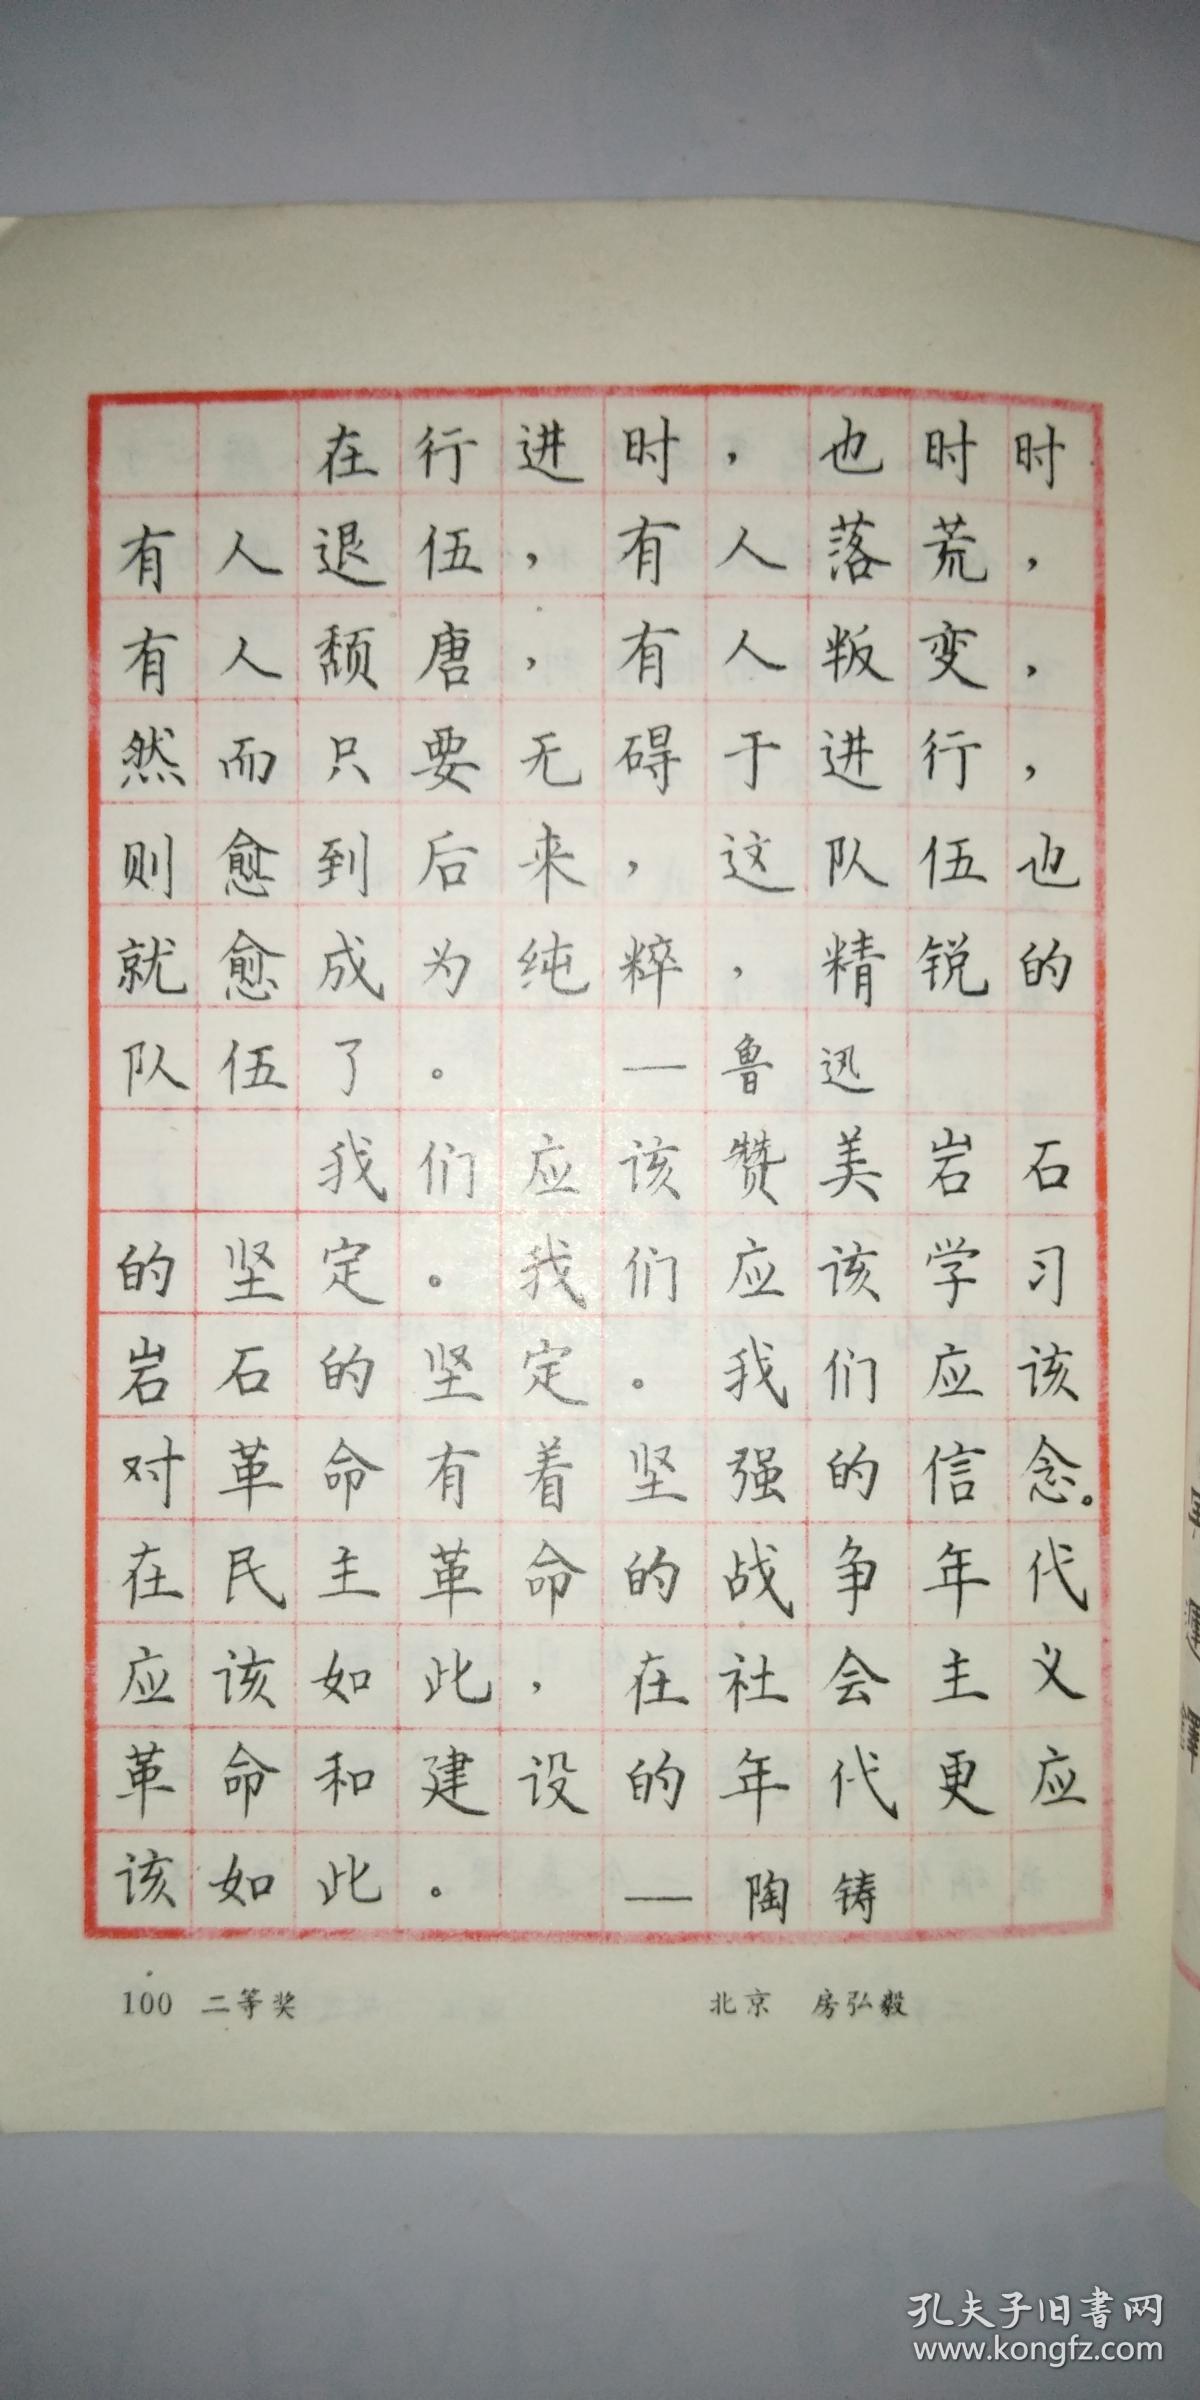 在行进时，也时时
有人退伍，有人落荒，
有人颓唐，有人叛变，
然而只要无碍于进行，
则愈到后来，这队伍也
就愈成为纯粹，精锐的
队伍了。 —鲁迅
我们应该赞美岩石
的坚定。我们应该学习
岩石的坚定。我们应该
对革命有着坚强的信念。
在民主革命的战争年代
应该如此，在社会主义
革命和建设的年代更应
该如此。 —陶铸
100 二等奖 北京 房弘毅
孔夫子旧书网
www.kongfz.com